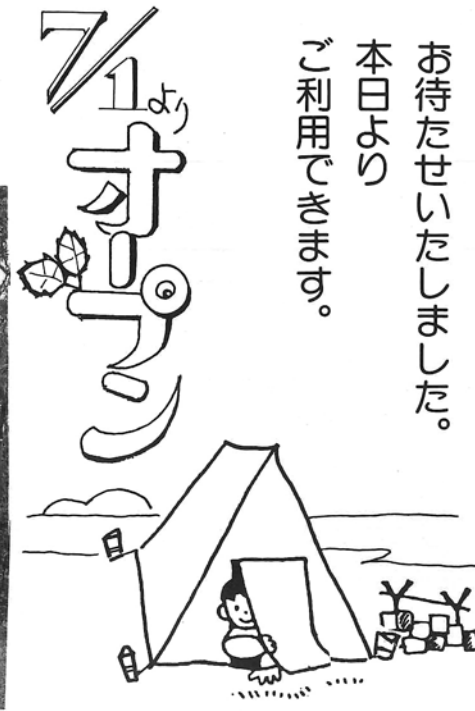 お待たせいたしました。
本日より
ご利用できます。
7/1より
オープン